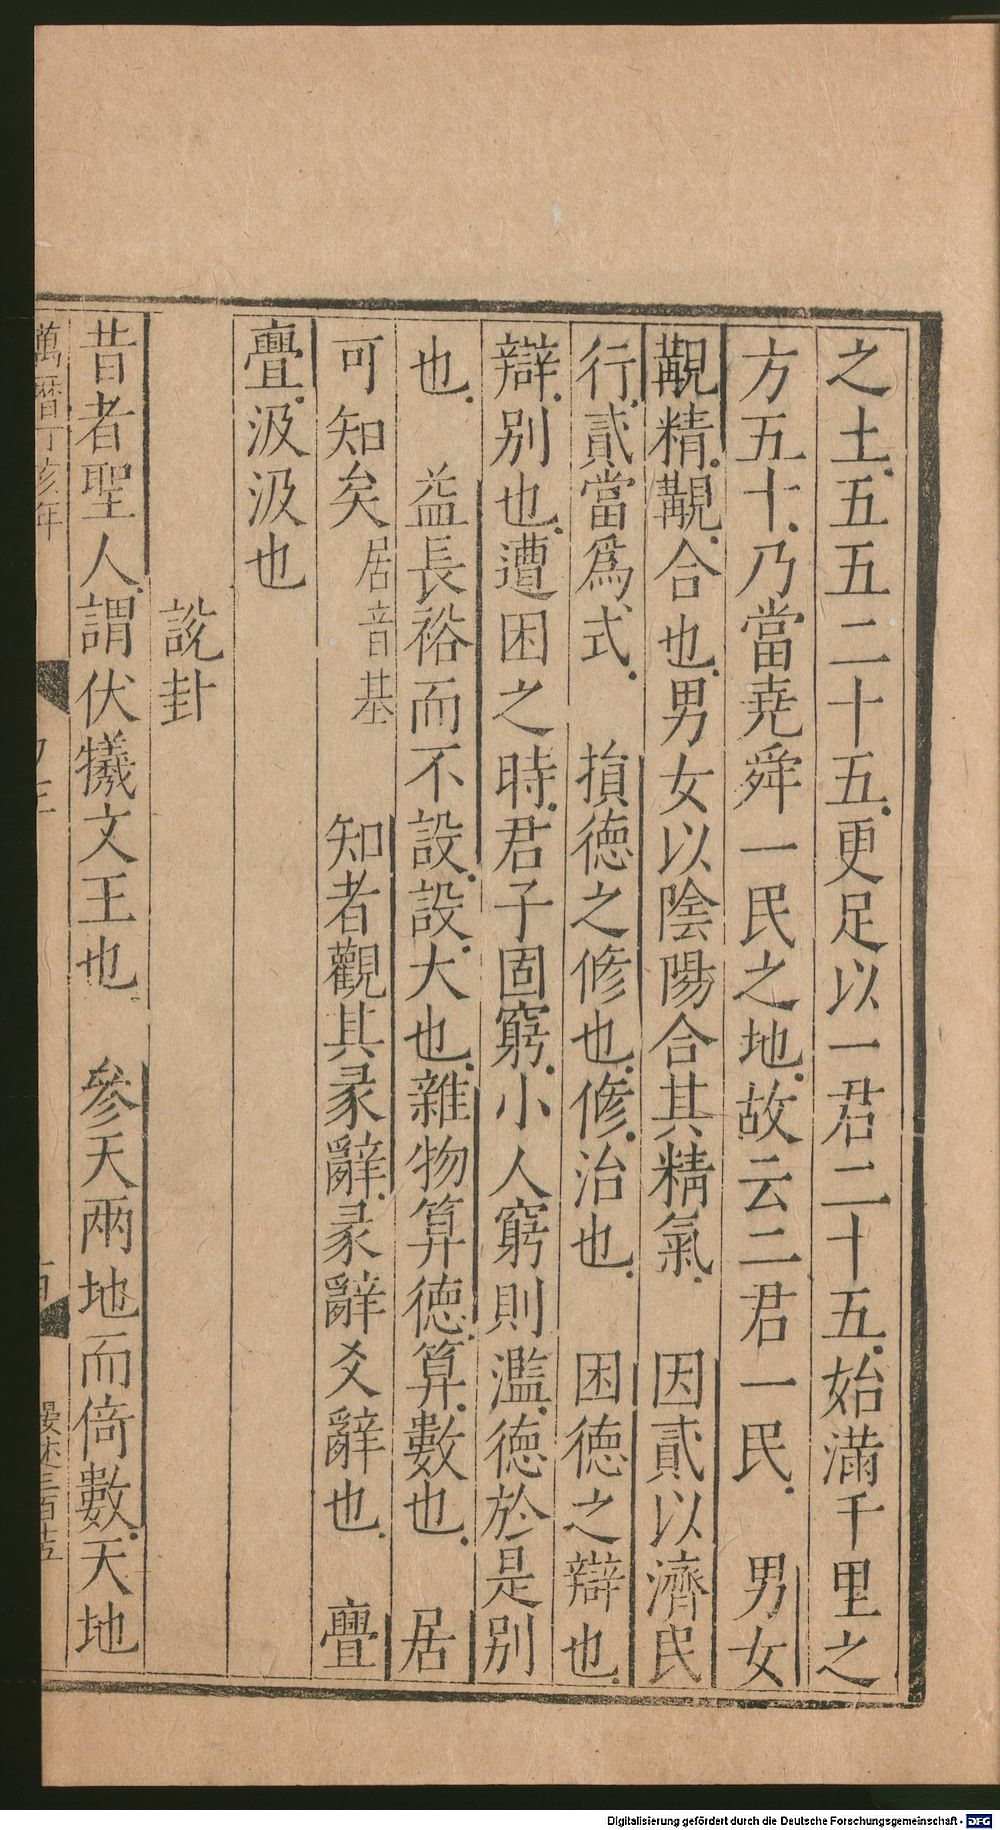 之土五五二十五更足以一君二十五始滿千里之
方五十乃當堯舜一民之地故云二君一民　男女
覯精覯合也男女以陰陽合其精氣　因貳以濟民
行貳當為式　損德之修也修治也　困德之辯也
辯別也遭困之時君子固窮小人窮則濫德於是別
也　益長裕而不設設大也雜物算德算數也　居
可知矣居音基　知者觀其彖辭彖辭爻辭也　亹
亹汲汲也
說卦
昔者聖人謂伏犧文王也　參天兩地而倚數天地
萬曆丁亥年
Digitalisierung gefördert durch die Deutsche Forschungsgemeinschaft - DFG